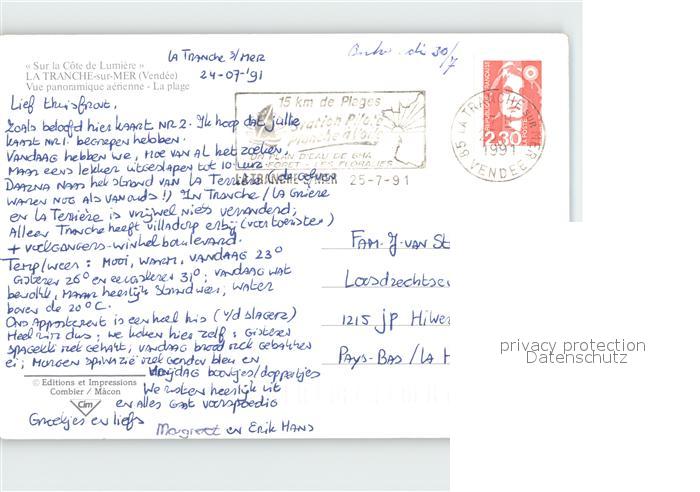 « Sur la Côte de Lumière »
LA TRANCHE-sur-MER (Vendée)
Vue panoramique aérienne - La plage
LA TRANCHE S/MER
24-07-'91
30/7
Lief thuisfront,
Zoals beloofd hier kaart NR 2. Ik hoop dat jullie
kaart NR 1 begrepen hebben.
Vandaag hebben we, moe van al het zoeken,
maar eens lekker uitgeslapen tot 10 uur.
Daarna naar het strand van La Terrière (de golven
waren nog als vanouds!) In Tranche/La Grière
en La Terrière is vrijwel niets veranderd;
Alleen Tranche heeft villadorp erbij (voor toeristen)
+ voetgangers-winkelboulevard.
Temp/weer: Mooi, warm, vandaag 23°
gisteren 26° en eergisteren 31°; vandaag wat
bewolkt, maar heerlijk strandweer, water
boven de 20°C.
Ons appartement is een heel huis (v/d slagers)
Heel ruim dus; we koken hier zelf: gisteren
spaghetti gehakt, vandaag brood met gebakken
ei; morgen spinazie met gordon bleu en
vrijdag boontjes/doppertjes
We rusten heerlijk uit
en alles gaat voorspoedig
Groetjes en liefs
Margreet en Erik Hans
15 km de Plages
Station Pilote
UN PLAN D'EAU DE
FORET - LES FLORALIES
LA TRANCHE S/MER 25-7-91
2,30
LA TRANCHE SUR MER
1991
85 VENDEE
Fam. J. van St
Loosdrechtse
1215 JP Hilver
Pays-Bas / La H
© Editions et Impressions
Combier / Mâcon
Cim
privacy protection
Datenschutz